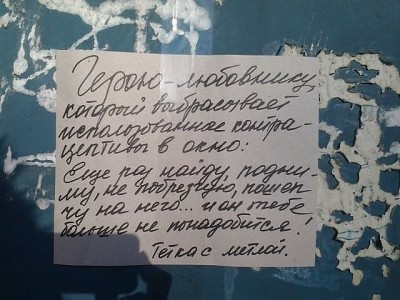 Герою-любовнику,
который выбрасывает
использованные контра-
цептивы в окно:
Еще раз найду, подни-
му, не побрезгую, пошеп-
чу на него... и он тебе
больше не понадобится!
Тётка с метлой.